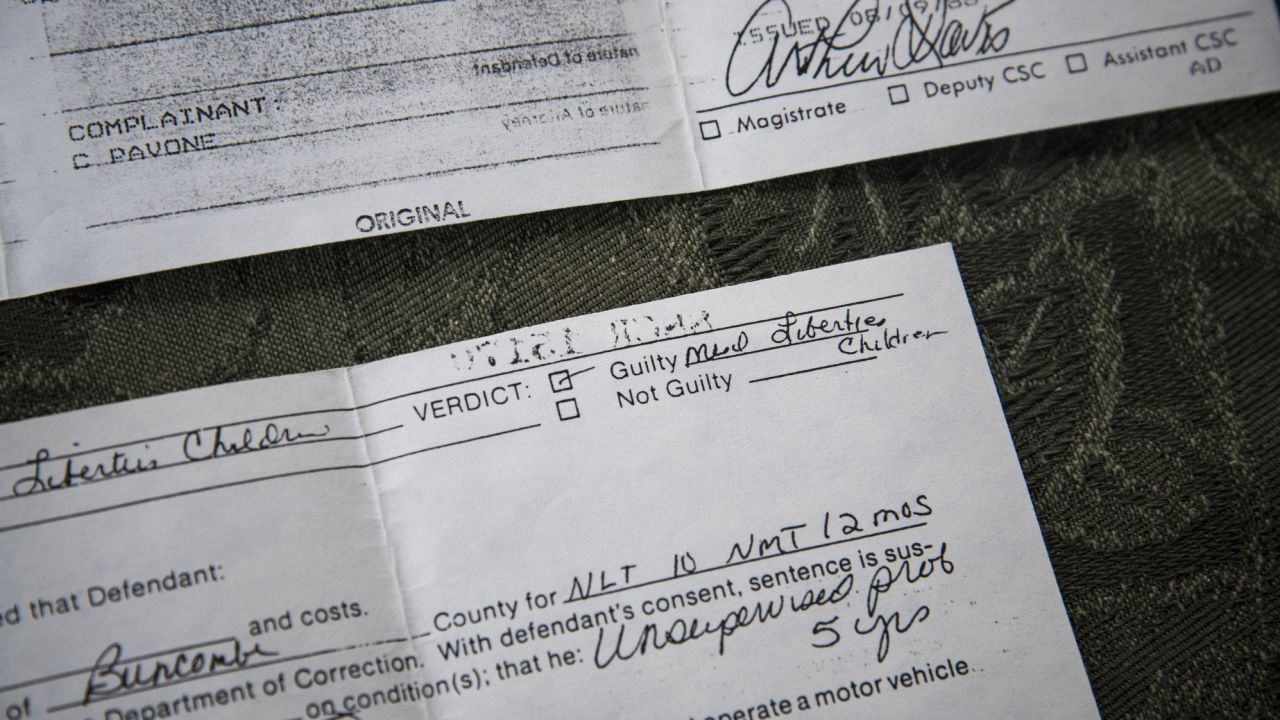 ISSUED
COMPLAINANT:
C PAVONE
Magistrate
Deputy CSC
Assistant CSC
AD
ORIGINAL
VERDICT:
Guilty
Liberties
Children
Not Guilty
Liberties Children
ed that Defendant:
and costs.
of Buncombe
County for NLT 10 NMT 12 mos
Department of Correction. With defendant's consent, sentence is sus-
on condition(s); that he: Unsupervised prob
5 yrs
operate a motor vehicle